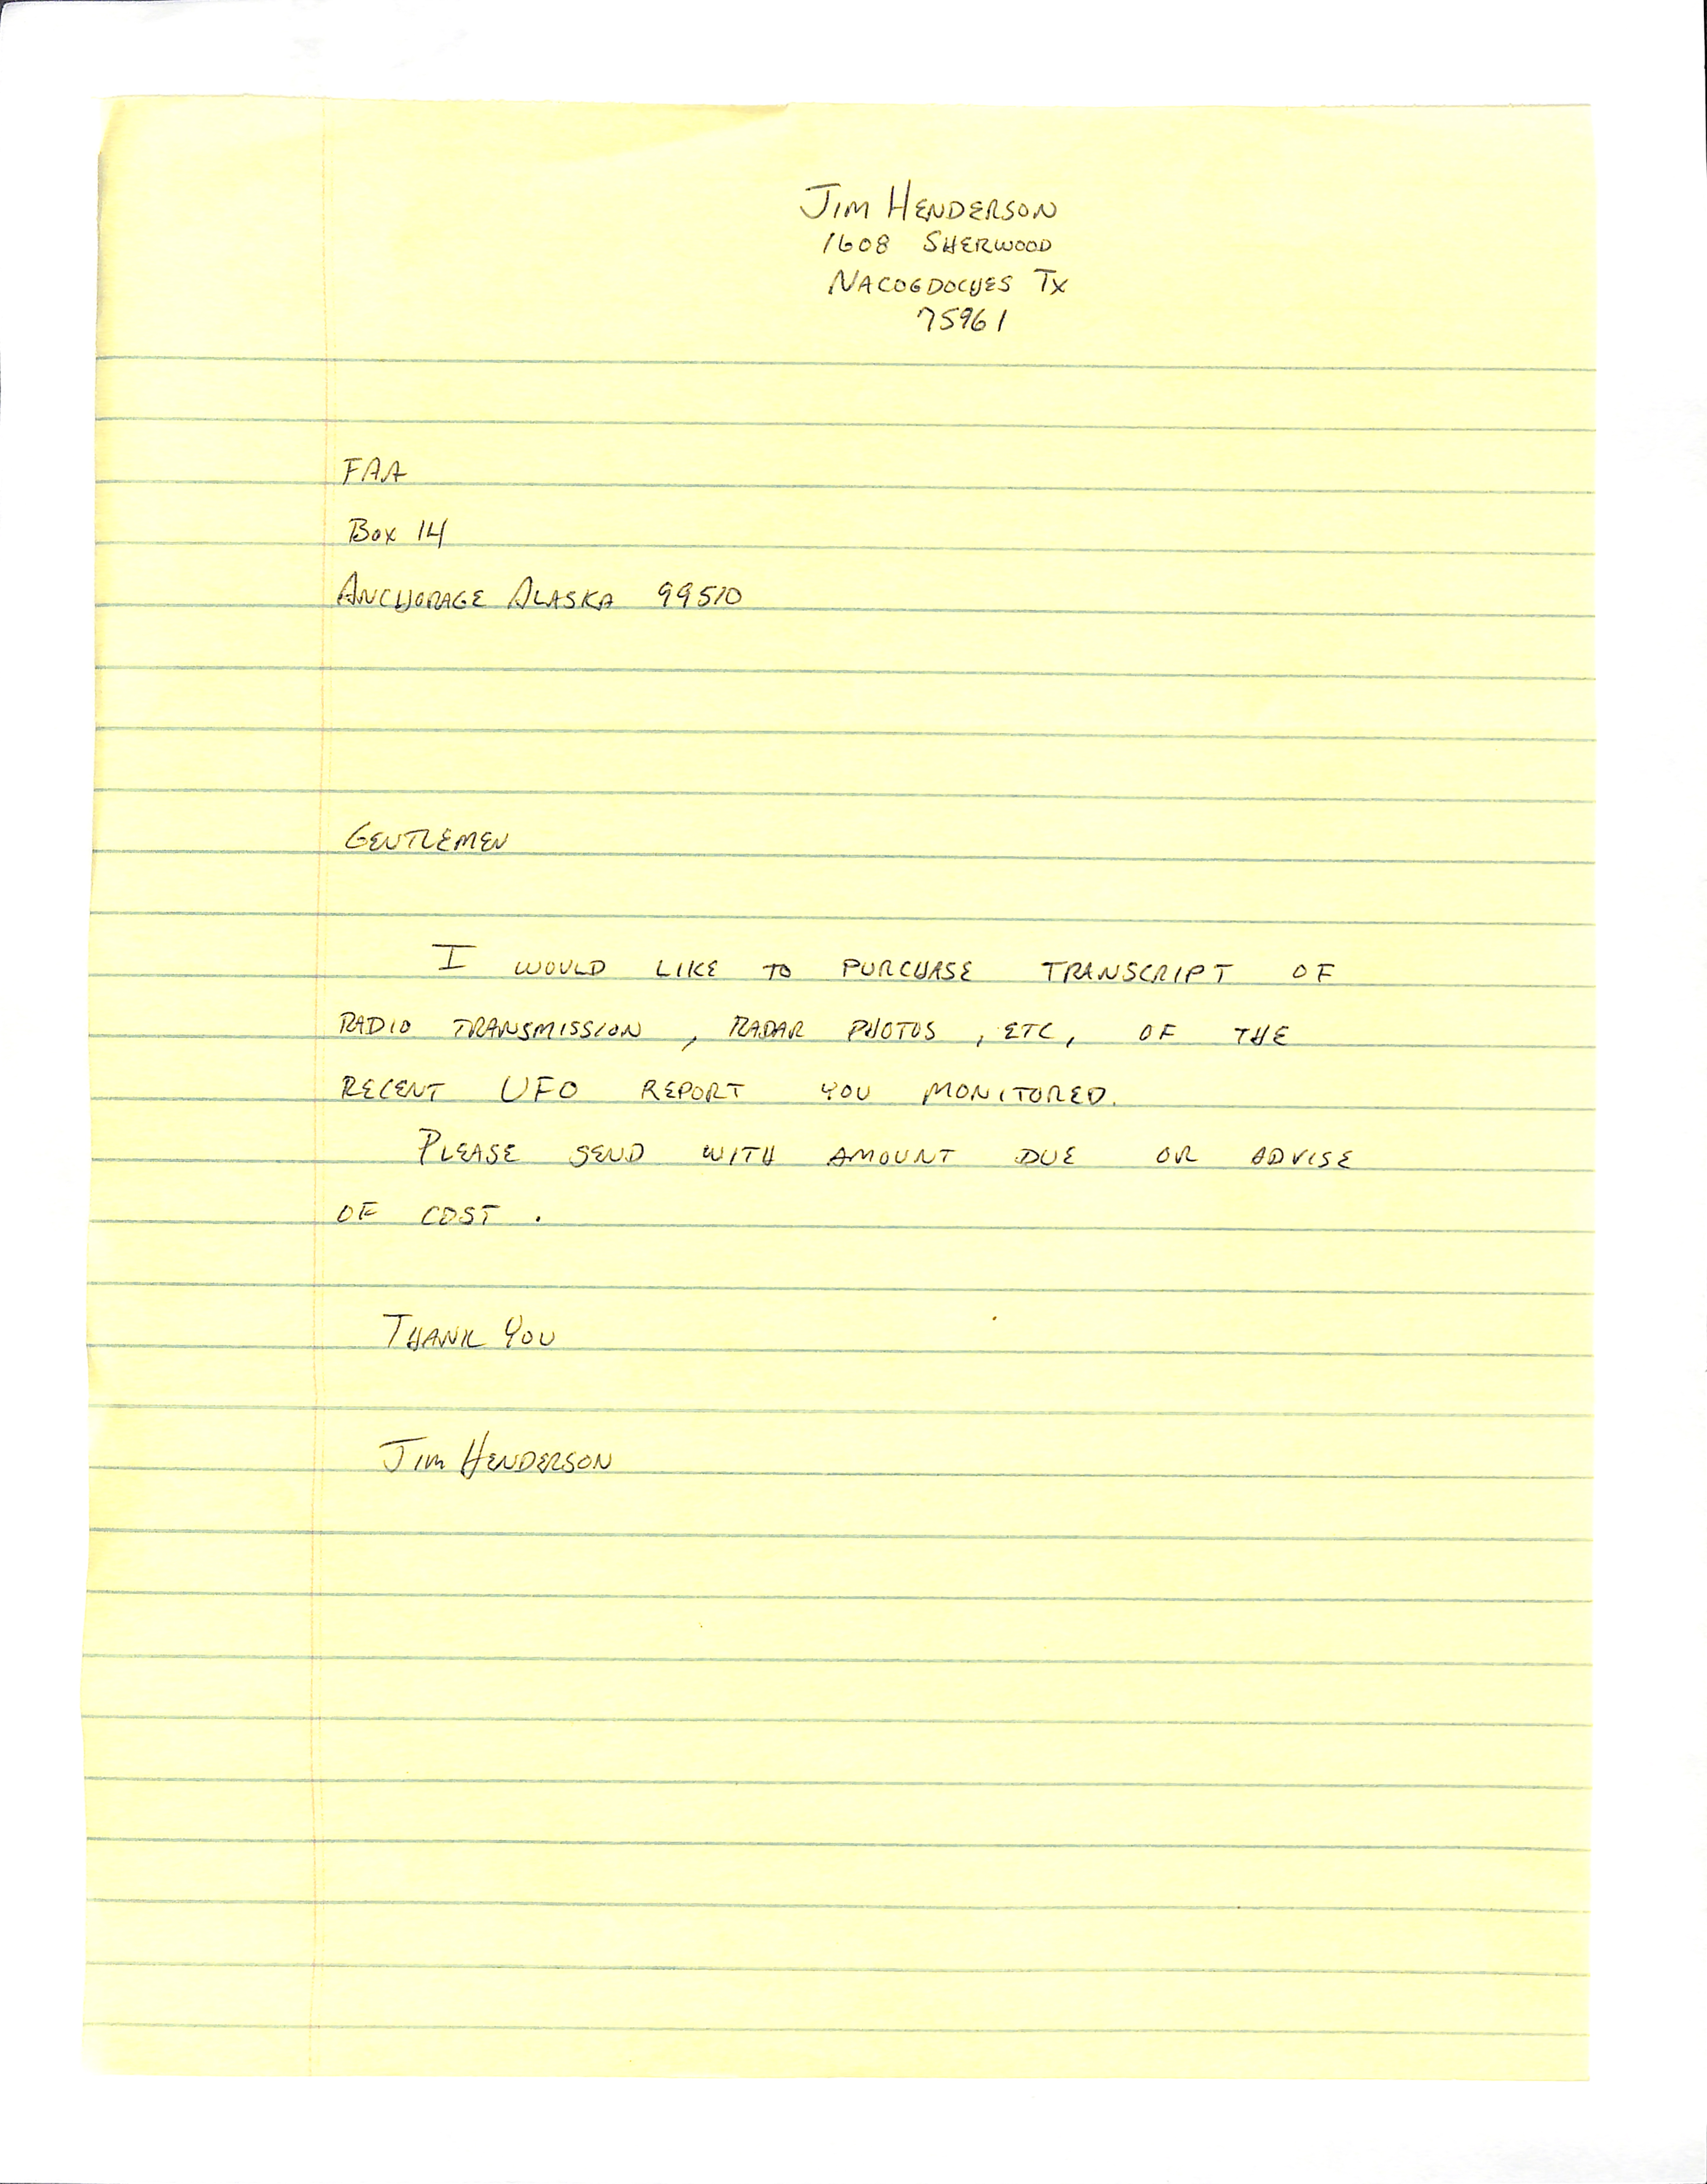 JIM HENDERSON
1608 SHERWOOD
NACOGDOCHES TX
75961
FAA
BOX 14
ANCHORAGE ALASKA 99510
GENTLEMEN
I WOULD LIKE TO PURCHASE TRANSCRIPT OF
RADIO TRANSMISSION, RADAR PHOTOS, ETC, OF THE
RECENT UFO REPORT YOU MONITORED.
PLEASE SEND WITH AMOUNT DUE OR ADVISE
OF COST.
THANK YOU
JIM HENDERSON